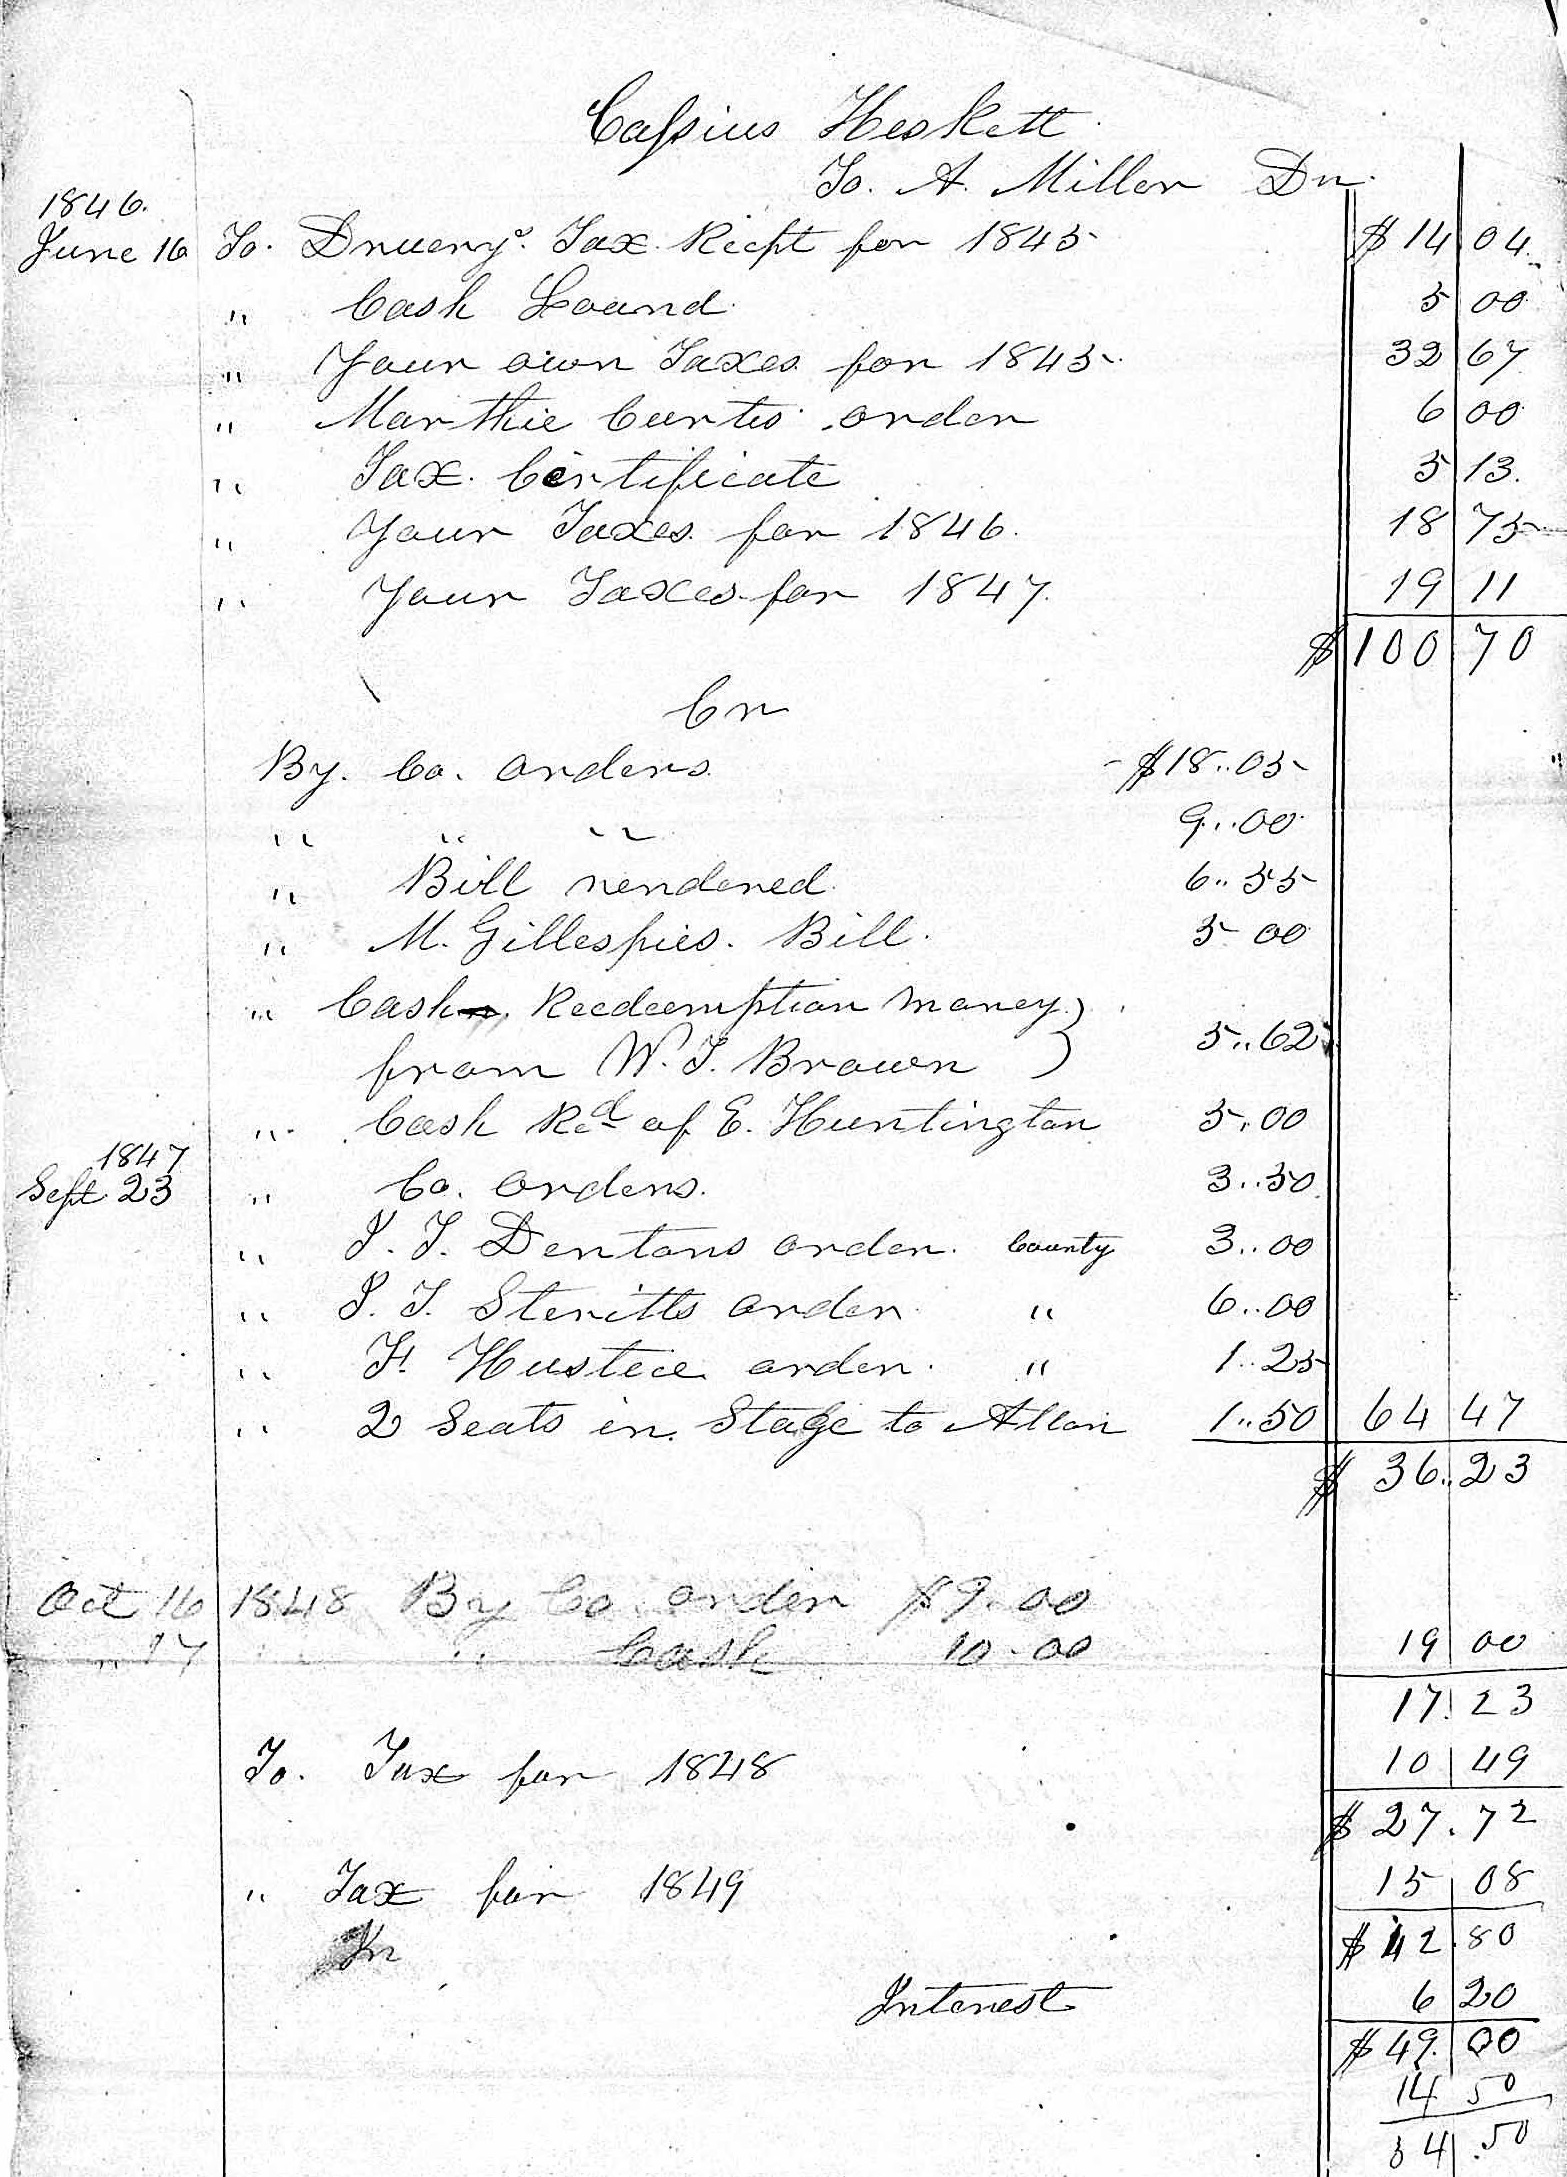 Cassius Heskett
To. A. Miller Dr.
1846.
June 16 To. Druery's. Tax Recpt for 1845 $14 04
" Cash Loand 5 00
" Your own Taxes for 1845 32 67
" Marthie Curtis order 6 00
" Tax. Certificate 5 13.
" Your Taxes for 1846. 18 75
" Your Taxes for 1847. 19 11
$100 70
Cr
By. Co. orders $18..05
" " " 9..00
" Bill rendered 6..55
" M. Gillespies. Bill. 5 00
" Cash Reedeemption money
from W. T. Brown 5..62
" Cash Recd of E. Huntington 5.00
1847
Sept 23 " Co. orders. 3..50
" J. T. Dentons order. County 3..00
" J. T. Steritts order " 6..00
" Hustice order. " 1..25
" 2 Seats in Stage to Alton 1..50 64 47
$ 36..23
Oct 16 1848 By Co order $9.00
" 17 " " Cash 10-00 19 00
17. 23
To. Tax for 1848 10 49
$27.72
" Tax for 1849 15 08
In $42.80
Interest 6 20
$49. 00
14 50
34 .50